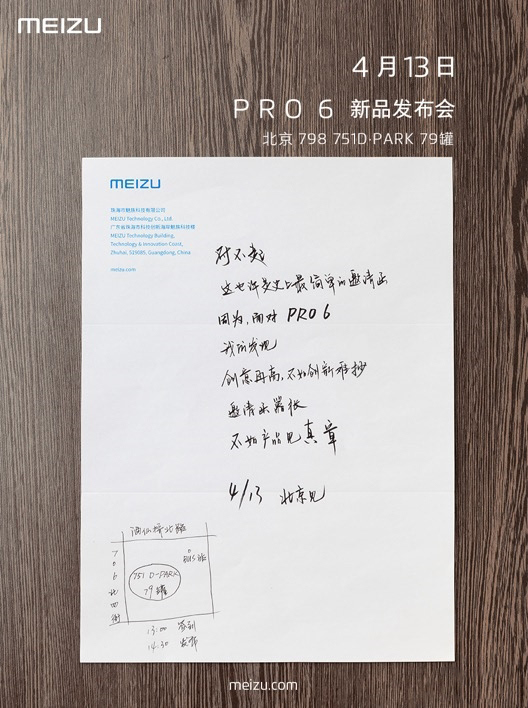 MEIZU
4月13日
PRO 6 新品发布会
北京 798 751D·PARK 79罐
MEIZU
珠海市魅族科技有限公司
MEIZU Technology Co., Ltd.
广东省珠海市科技创新海岸魅族科技楼
MEIZU Technology Building,
Technology & Innovation Coast,
Zhuhai, 519085, Guangdong, China
meizu.com
对不起
这也许是史上最简单的邀请函
因为,面对 PRO 6
我们发现
创意再高,不如创新难抄
邀请函嚣张
不如产品见真章
4/13 北京见
酒仙桥北路
706北四街
BUS站
751 D-PARK
79罐
13:00 签到
14:30 发布
meizu.com